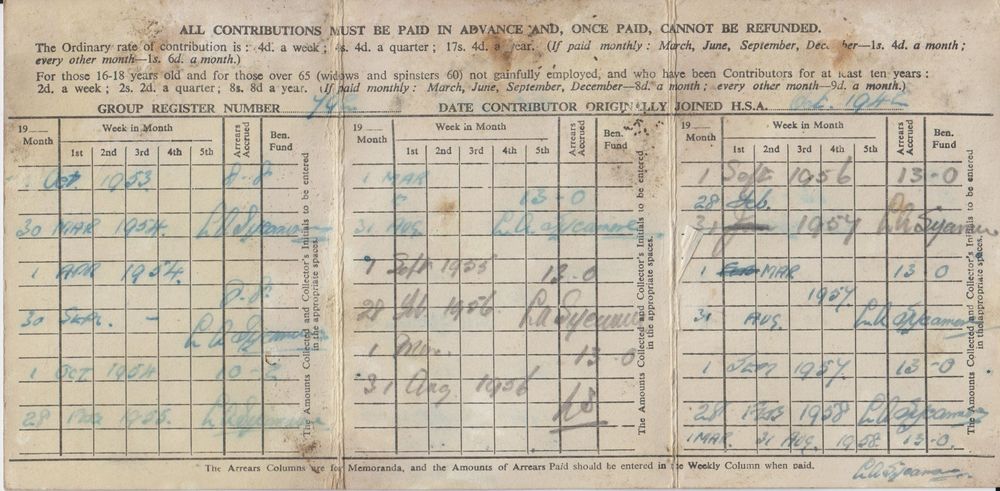 ALL CONTRIBUTIONS MUST BE PAID IN ADVANCE AND, ONCE PAID, CANNOT BE REFUNDED.
The Ordinary rate of contribution is: 4d. a week; 4s. 4d. a quarter; 17s. 4d. a year. (If paid monthly: March, June, September, December—1s. 4d. a month;
every other month—1s. 6d. a month.)
For those 16-18 years old and for those over 65 (widows and spinsters 60) not gainfully employed, and who have been Contributors for at least ten years:
2d. a week; 2s. 2d. a quarter; 8s. 8d a year. (If paid monthly: March, June, September, December—8d. a month; every other month—9d. a month.)
GROUP REGISTER NUMBER
DATE CONTRIBUTOR ORIGINALLY JOINED H.S.A. Oct.
19__ Month Week in Month 1st 2nd 3rd 4th 5th Arrears Accrued Ben. Fund
1 Oct 1953 8-8
30 MAR 1954. L.A. Sycamore
1 APR 1954.
8-8.
30 Sept. -
L.A. Sycamore
1 OCT 1954
28 1955. L.A. Sycamore
The Amounts Collected and Collector's Initials to be entered in the appropriate spaces.
Month Week in Month 1st 2nd 3rd 4th 5th Arrears Accrued Ben. Fund
1 MAR
" 13-0
31 Aug. L.A. Sycamore
1 Sept 1955 13-0
28 feb. 1956. L.A. Sycamore
1 Mar. 13-0
31 Aug 1956
The Amounts Collected and Collector's Initials to be entered in the appropriate spaces.
19__ Month Week in Month 1st 2nd 3rd 4th 5th Arrears Accrued Ben. Fund
1 Sept 1956 13-0
28 feb.
31 1957 L.A. Sycamore
1 MAR 13 0
1957.
31 Aug. L.A. Sycamore
1 1957. 13-0
28 1958 L.A. Sycamore
1 MAR. 31 AUG. 1958. 13-0.
The Amounts Collected and Collector's Initials to be entered in the appropriate spaces.
The Arrears Columns are for Memoranda, and the Amounts of Arrears Paid should be entered in the Weekly Column when paid.
L.A. Sycamore